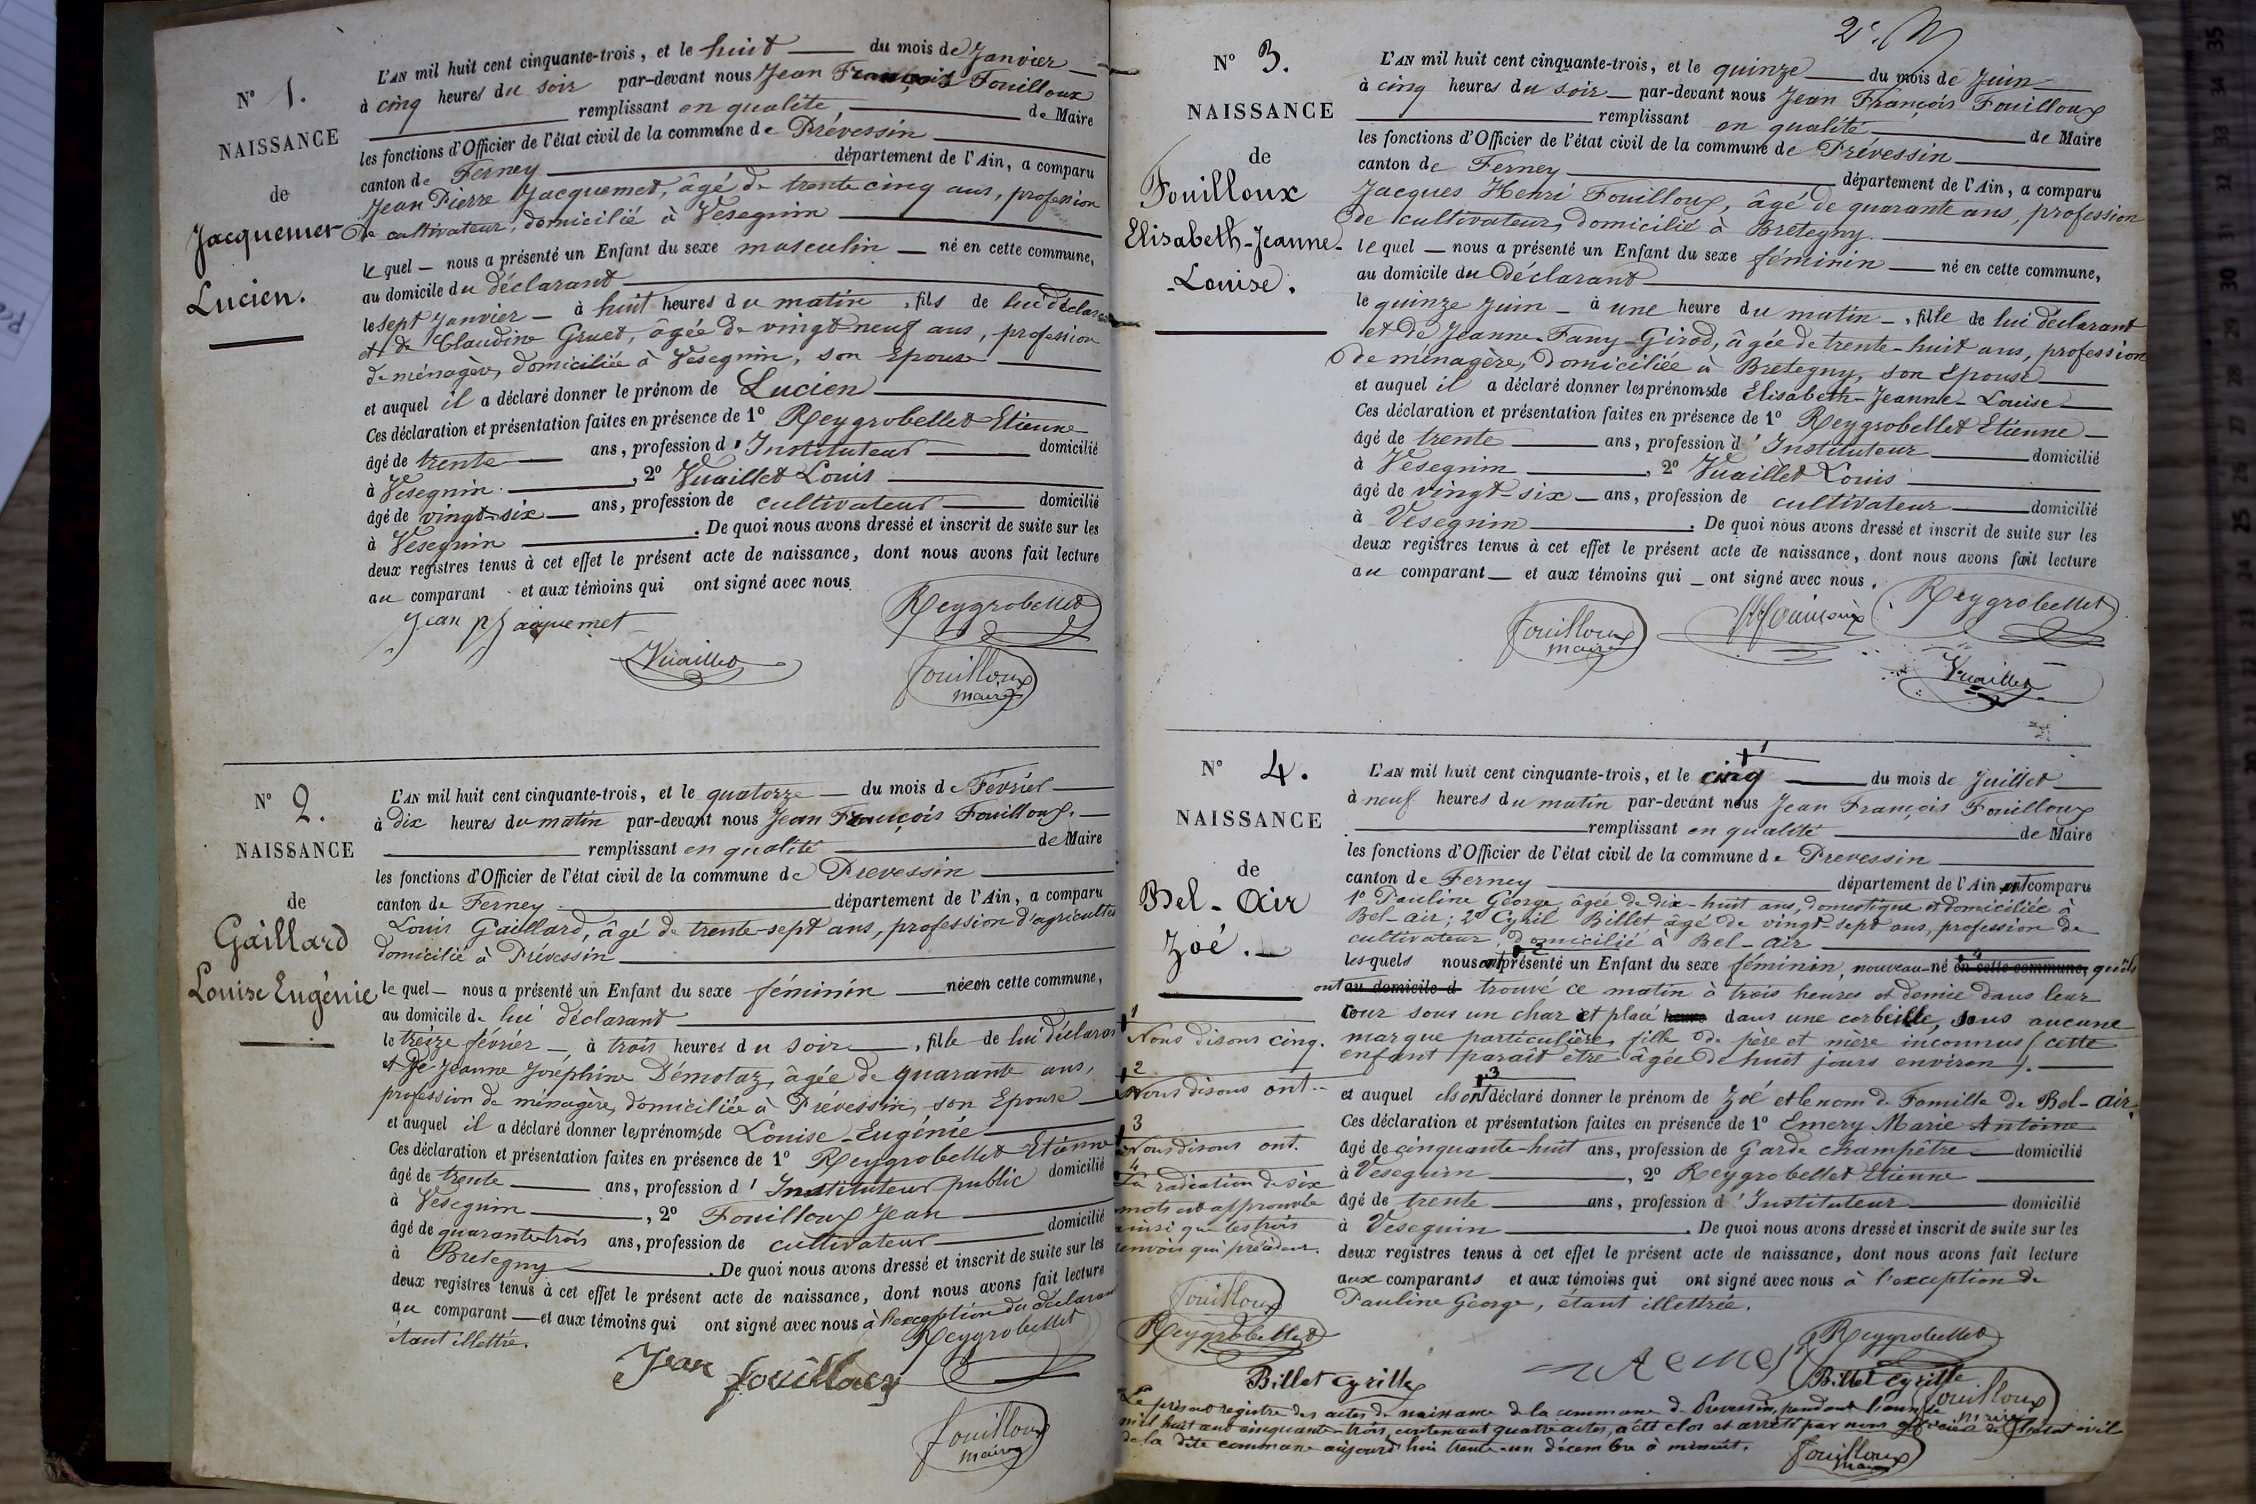 N° 1.
NAISSANCE
de
Jacquemet
Lucien.
L'AN mil huit cent cinquante-trois, et le huit du mois de Janvier
à cinq heures du soir par-devant nous Jean François Fouilloux
remplissant en qualité de Maire
les fonctions d'Officier de l'état civil de la commune de Prévessin
canton de Ferney département de l'Ain, a comparu
Jean Pierre Jacquemet, âgé de trente cinq ans, profession
de cultivateur, domicilié à Vésegnin
lequel nous a présenté un Enfant du sexe masculin né en cette commune,
au domicile du déclarant
le sept Janvier à huit heures du matin, fils de lui déclarant
et de Claudine Gruet, âgée de vingt-neuf ans, profession
de ménagère, domiciliée à Vésegnin, son Epouse
et auquel il a déclaré donner le prénom de Lucien
Ces déclaration et présentation faites en présence de 1° Reygrobellet Etienne
âgé de trente ans, profession d'Instituteur domicilié
à Vésegnin, 2° Vuaillet Louis
âgé de vingt-six ans, profession de cultivateur domicilié
à Vésegnin. De quoi nous avons dressé et inscrit de suite sur les
deux registres tenus à cet effet le présent acte de naissance, dont nous avons fait lecture
au comparant et aux témoins qui ont signé avec nous
Jean P Jacquemet
Reygrobellet
Vuaillet
Fouilloux
maire
N° 2.
NAISSANCE
de
Gaillard
Louise Eugénie
L'AN mil huit cent cinquante-trois, et le quatorze du mois de Février
à dix heures du matin par-devant nous Jean François Fouilloux.
remplissant en qualité de Maire
les fonctions d'Officier de l'état civil de la commune de Prevessin
canton de Ferney département de l'Ain, a comparu
Louis Gaillard, âgé de trente-sept ans, profession d'agriculteur
domicilié à Prévessin
lequel nous a présenté un Enfant du sexe féminin née en cette commune,
au domicile de lui déclarant
le treize février à trois heures du soir, fille de lui déclarant
et de Jeanne Joséphine Démotaz, âgée de quarante ans,
profession de ménagère, domiciliée à Prévessin, son Epouse
et auquel il a déclaré donner les prénoms de Louise-Eugénie
Ces déclaration et présentation faites en présence de 1° Reygrobellet Etienne
âgé de trente ans, profession d'Instituteur public domicilié
à Vésegnin, 2° Fouilloux Jean
âgé de quarante-trois ans, profession de cultivateur domicilié
à Bretegny. De quoi nous avons dressé et inscrit de suite sur les
deux registres tenus à cet effet le présent acte de naissance, dont nous avons fait lecture
au comparant et aux témoins qui ont signé avec nous à l'exception du déclarant
étant illettré.
Reygrobellet
Jean fouilloux
Fouilloux
maire
2e.
N° 3.
NAISSANCE
de
Fouilloux
Elisabeth-Jeanne-
-Louise.
L'AN mil huit cent cinquante-trois, et le quinze du mois de Juin
à cinq heures du soir par-devant nous Jean François Fouilloux
remplissant en qualité de Maire
les fonctions d'Officier de l'état civil de la commune de Prévessin
canton de Ferney département de l'Ain, a comparu
Jacques Henri Fouilloux, âgé de quarante ans, profession
de cultivateur, domicilié à Bretegny.
lequel nous a présenté un Enfant du sexe féminin né en cette commune,
au domicile du déclarant
le quinze juin à une heure du matin, fille de lui déclarant
et de Jeanne-Fany-Girod, âgée de trente-huit ans, profession
de ménagère, domiciliée à Bretegny, son Epouse
et auquel il a déclaré donner les prénoms de Elisabeth-Jeanne-Louise
Ces déclaration et présentation faites en présence de 1° Reygrobellet Etienne
âgé de trente ans, profession d'Instituteur domicilié
à Vésegnin, 2° Vuaillet Louis
âgé de vingt-six ans, profession de cultivateur domicilié
à Vésegnin. De quoi nous avons dressé et inscrit de suite sur les
deux registres tenus à cet effet le présent acte de naissance, dont nous avons fait lecture
au comparant et aux témoins qui ont signé avec nous.
Fouilloux
maire
Reygrobellet
Vuaillet
N° 4.
NAISSANCE
de
Bel-Air
Zoé.
L'AN mil huit cent cinquante-trois, et le cinq 1 du mois de Juillet
à neuf heures du matin par-devant nous Jean François Fouilloux
remplissant en qualité de Maire
les fonctions d'Officier de l'état civil de la commune de Prevessin
canton de Ferney département de l'Ain, ont comparu
1° Pauline George, âgée de dix-huit ans, domestique et domiciliée à
Bel-air; 2° Cyril Billet âgé de vingt-sept ans, profession de
cultivateur, domicilié à Bel-air
lesquels nous ont présenté un Enfant du sexe féminin, nouveau-né en cette commune, qu'ils
ont au domicile d trouvé ce matin à trois heures et demie dans leur
cour sous un char et placé heure dans une corbeille, sans aucune
marque particulière, fille de père et mère inconnus (cette
enfant paraît être âgée de huit jours environ).
et auquel ils ont 3 déclaré donner le prénom de Zoé et le nom de Famille de Bel-air.
Ces déclaration et présentation faites en présence de 1° Emery Marie Antoine
âgé de cinquante-huit ans, profession de Garde champêtre domicilié
à Vésegnin, 2° Reygrobellet Etienne
âgé de trente ans, profession d'Instituteur domicilié
à Vésegnin. De quoi nous avons dressé et inscrit de suite sur les
deux registres tenus à cet effet le présent acte de naissance, dont nous avons fait lecture
aux comparants et aux témoins qui ont signé avec nous à l'exception de
Pauline George, étant illettrée.
1
Nous disons cinq.
2
Nous disons ont
3
Nous disons ont.
4
La radiation de six
mots est approuvée
ainsi que les trois
renvois qui précèdent.
Fouilloux
Reygrobellet
Billet Cyrille
Reygrobellet
Billet Cyrille
Fouilloux
maire
Le présent registre des actes de naissance de la commune de Prevessin, pendant l'année
mil huit cent cinquante-trois, contenant quatre actes, a été clos et arrêté par nous officier de l'état civil
de la dite commune aujourd'hui trente-un décembre à minuit.
Fouilloux
maire
35
34
33
32
30
29
28
27
26
25
24
23
22
21
20